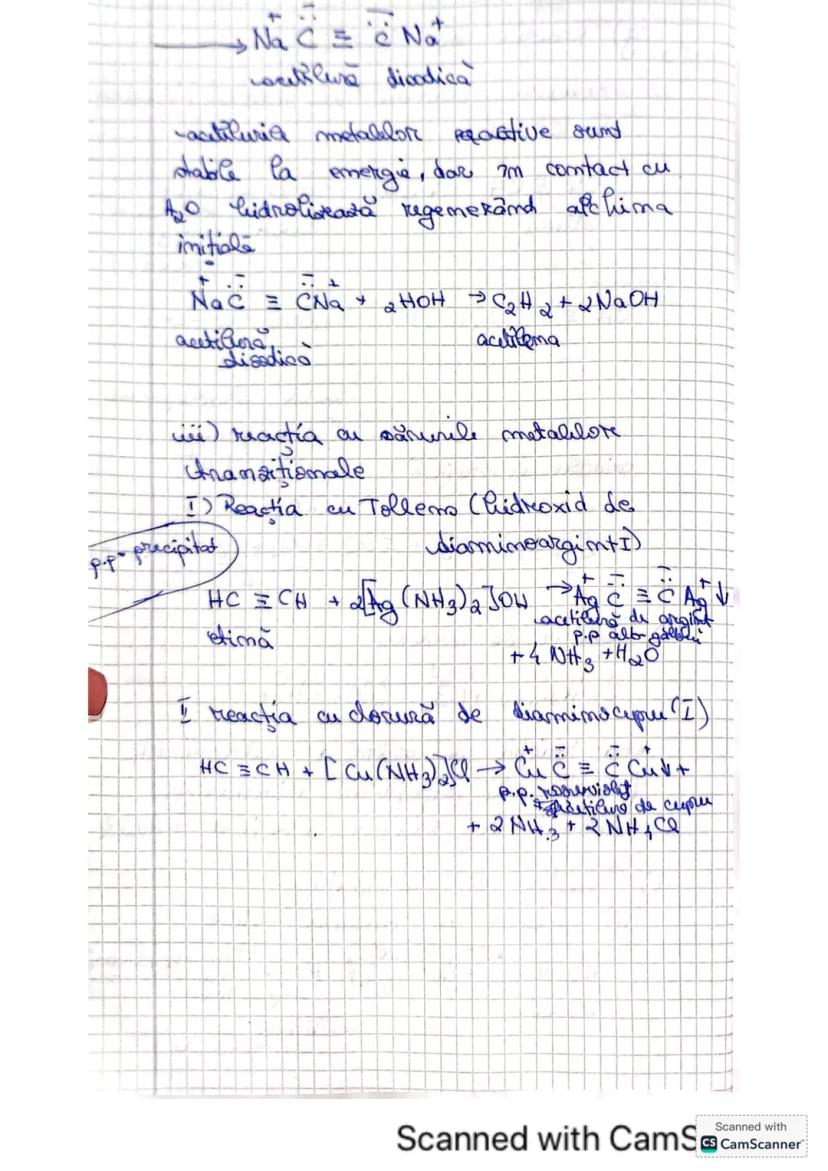 → Na⁺ C̈⁻ ≡ C̈⁻ Na⁺
acetilură disodică
-acetiluria metalelor reactive sunt
stabile la energie, dar în contact cu
H₂O hidrolizează regenerând alchina
inițială
Na⁺ C̈⁻ ≡ C̈⁻ Na⁺ + 2HOH → C₂H₂ + 2NaOH
acetilură acetilena
disodică
iii) reacția cu sărurile metalelor
tranziționale
I) Reacția cu Tollens (hidroxid de
p.p - precipitat
diaminoargint I)
HC ≡ CH + 2[Ag(NH3)2]OH → Ag⁺ C̈⁻ ≡ C̈⁻ Ag⁺ ↓
etină acetilură de argint
p.p alb-gălbui
+ 4 NH3 + H2O
I reacția cu clorură de diaminocupru (I)
HC ≡ CH + [Cu(NH3)2]Cl → Cu⁺ C̈⁻ ≡ C̈⁻ Cu⁺ ↓ +
p.p. roșu violet
acetilură de cupru
+ 2 NH3 + 2 NH4Cl
Scanned with CamS
Scanned with
CS CamScanner